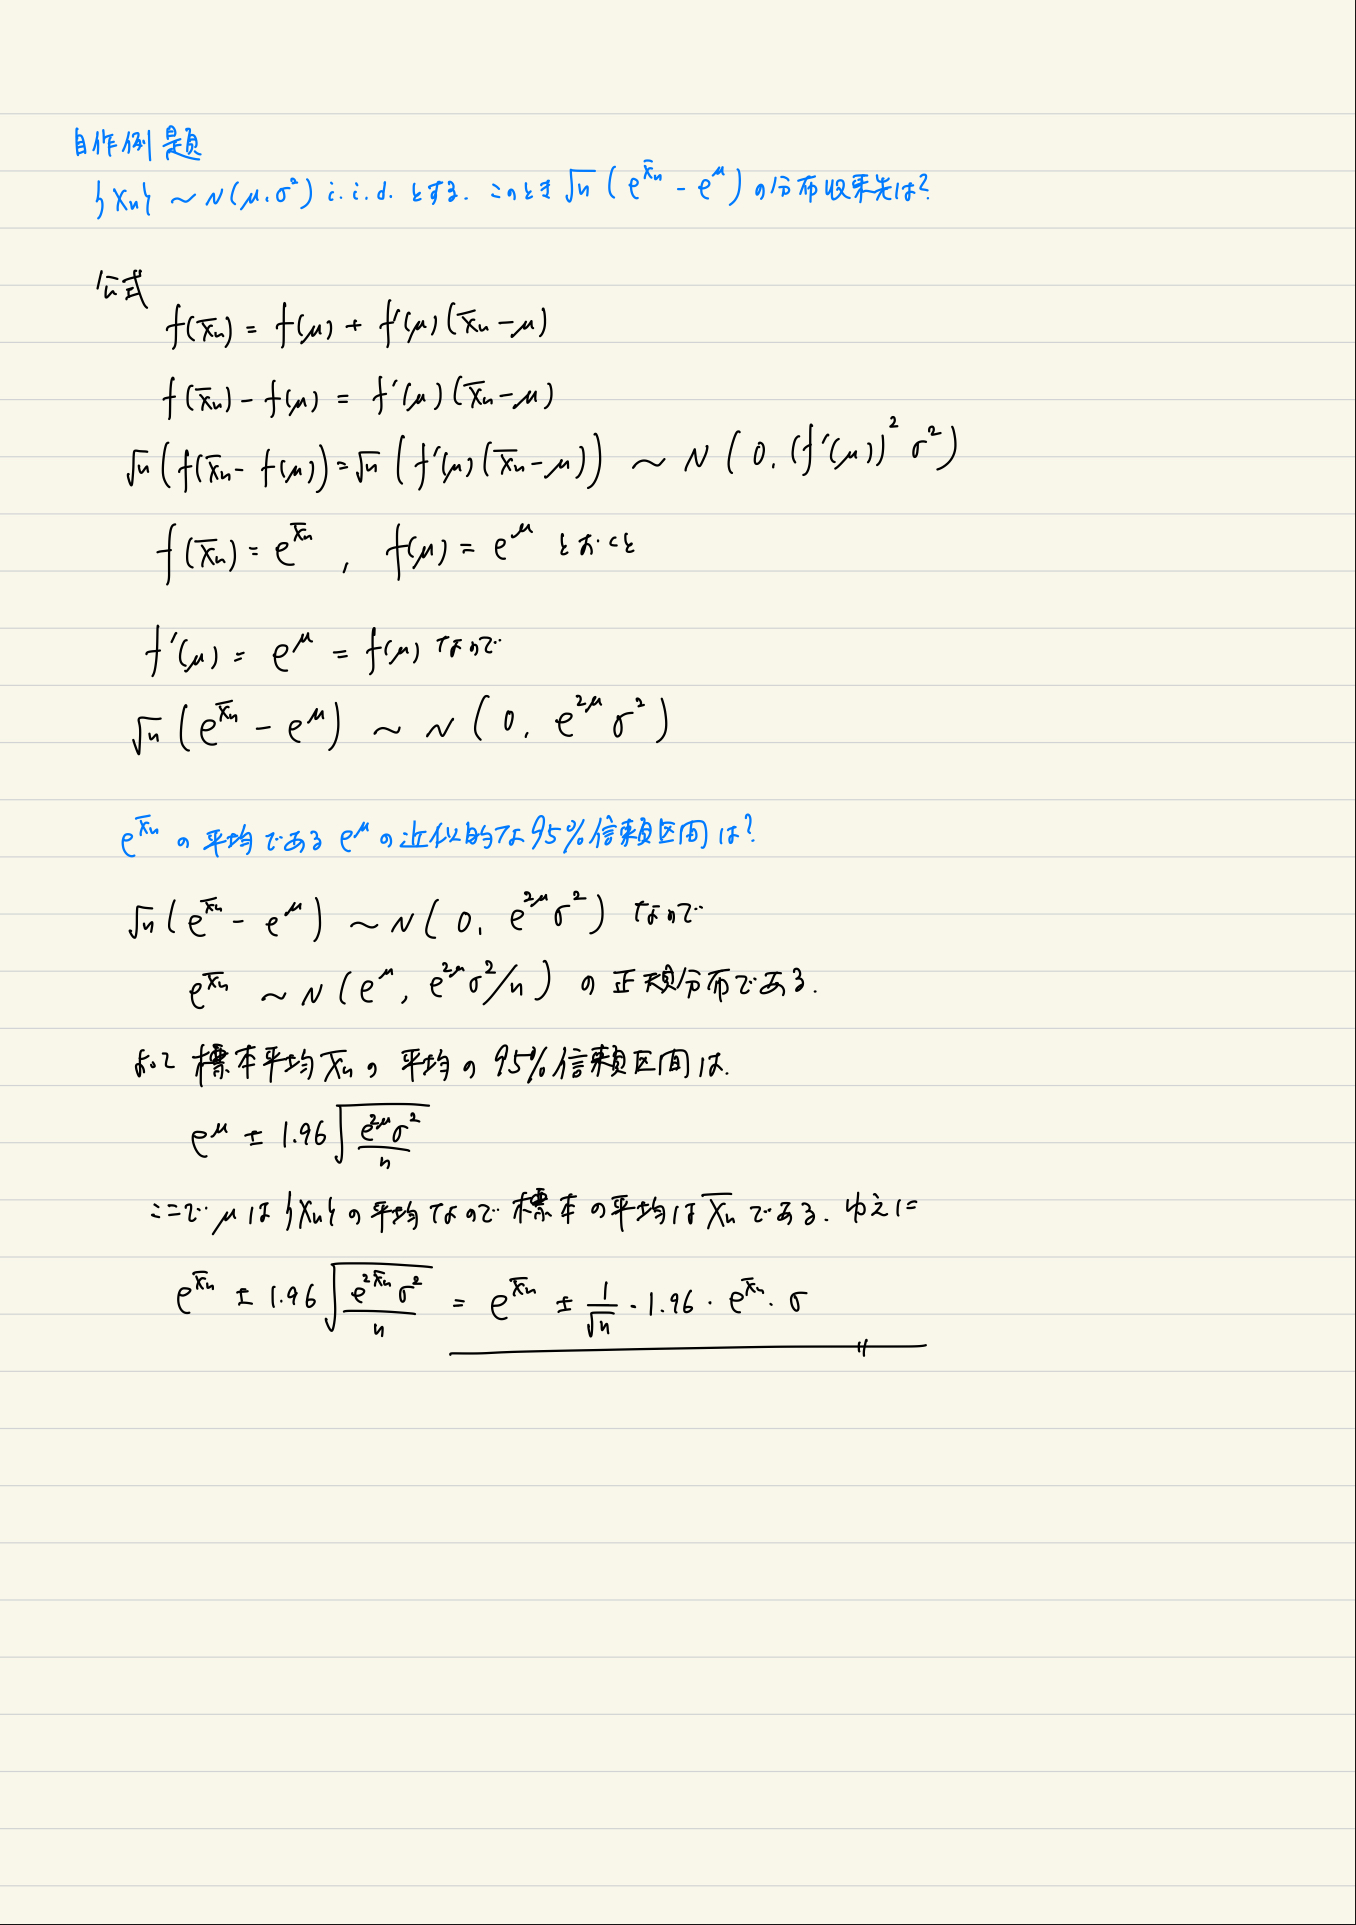 自作例題
{Xn} ~ N(μ, σ²) i.i.d. とする. このとき √n (e^X̄n - e^μ) の分布収束先は?
公式
f(X̄n) = f(μ) + f'(μ)(X̄n - μ)
f(X̄n) - f(μ) = f'(μ)(X̄n - μ)
√n (f(X̄n - f(μ)) = √n (f'(μ)(X̄n - μ)) ~ N(0, (f'(μ))² σ²)
f(X̄n) = e^X̄n , f(μ) = e^μ とおくと
f'(μ) = e^μ = f(μ) なので
√n (e^X̄n - e^μ) ~ N(0, e^2μ σ²)
e^X̄n の平均である e^μ の近似的な 95% 信頼区間は?
√n (e^X̄n - e^μ) ~ N(0, e^2μ σ²) なので
e^X̄n ~ N(e^μ, e^2μ σ²/n) の正規分布である.
よって 標本平均 X̄n の 平均の 95% 信頼区間は.
e^μ ± 1.96 √(e^2μ σ²/n)
ここで μは {Xn} の平均なので 標本の平均は X̄n である. ゆえに
e^X̄n ± 1.96 √(e^2X̄n σ²/n) = e^X̄n ± 1/√n · 1.96 · e^X̄n · σ